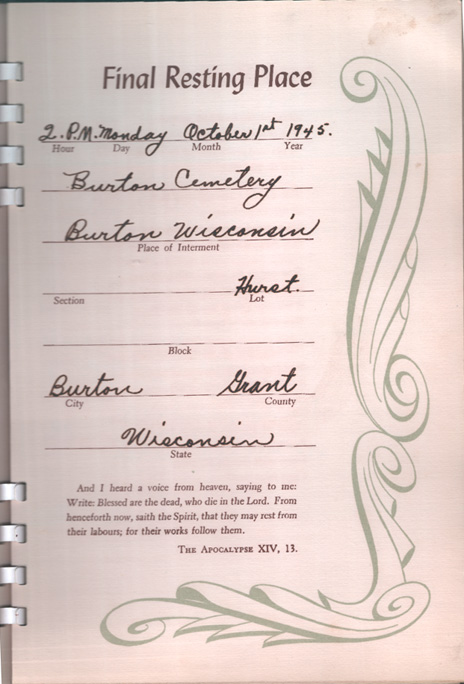 Final Resting Place
2. P.M. Monday October 1st 1945.
Hour Day Month Year
Burton Cemetery
Burton Wisconsin
Place of Interment
Hurst.
Section Lot
Block
Burton Grant
City County
Wisconsin
State
And I heard a voice from heaven, saying to me:
Write: Blessed are the dead, who die in the Lord. From
henceforth now, saith the Spirit, that they may rest from
their labours; for their works follow them.
The Apocalypse XIV, 13.